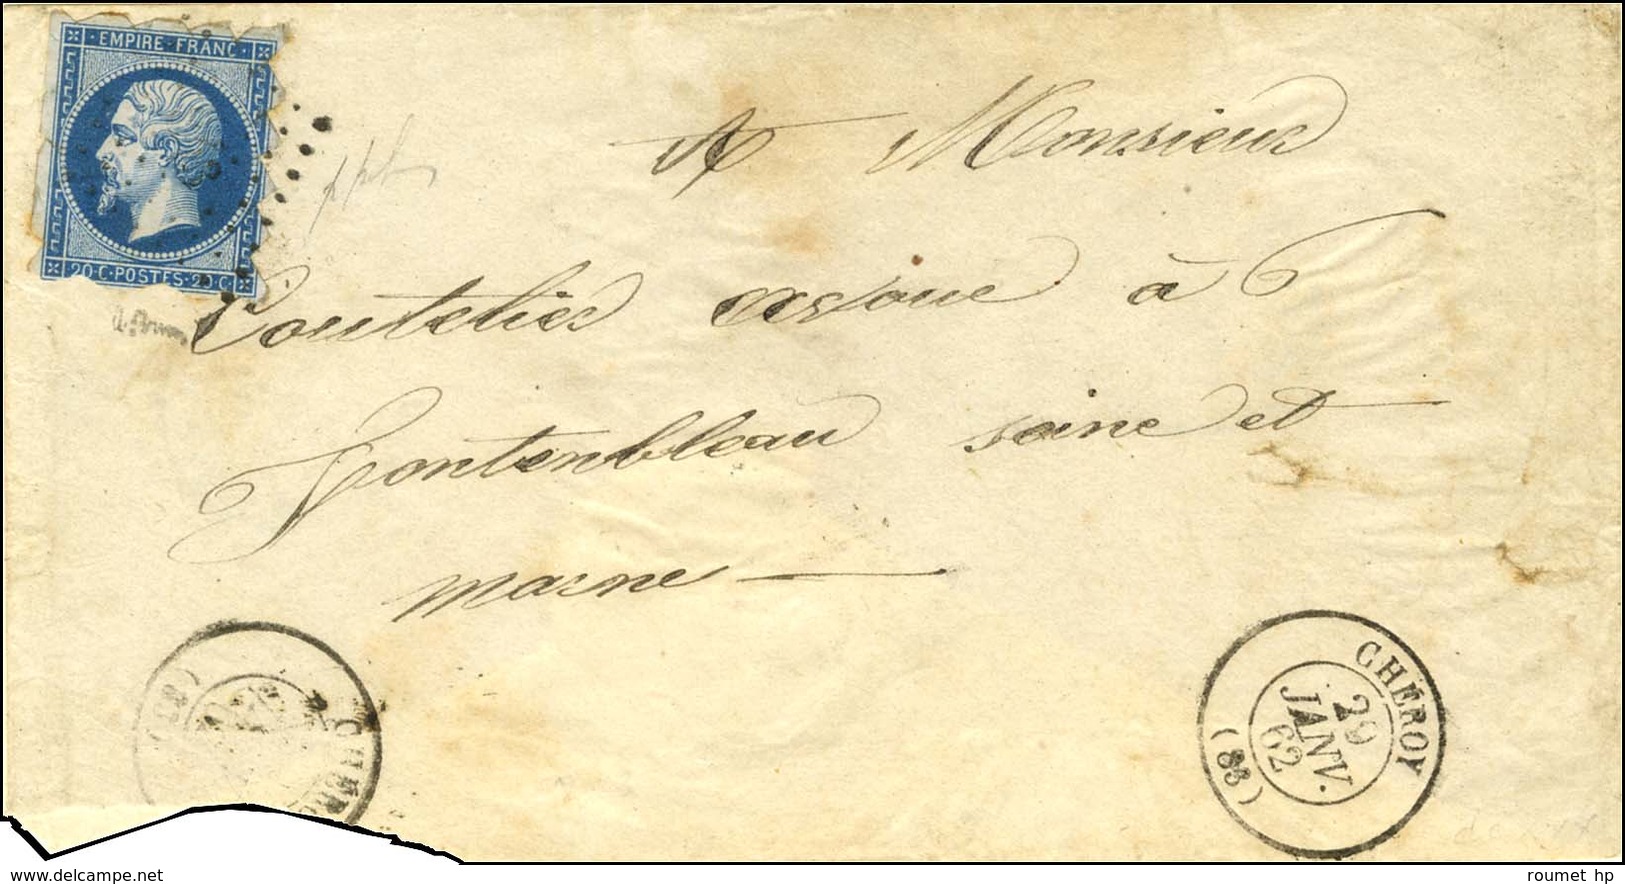 EMPIRE FRANC
20 C POSTES 20 C
A Monsieur
Coutelier avoué à
Fontenbleau seine et
marne
CHÉROY
29
JANV.
62
(83)
delcampe.net
roumet hp